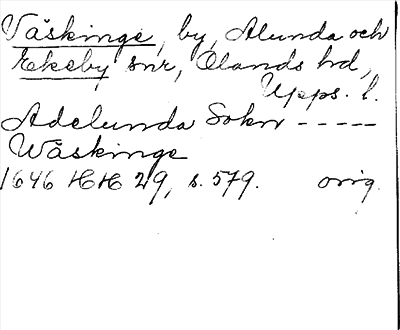 Väskinge, by, Alunda och
Ekeby snr, Olands hd,
Upps. l.
Adelunda Sokn -----
Wäskinge
1646 HH 29, s. 579. orig.